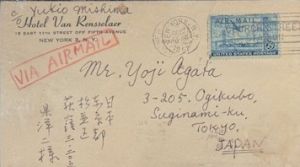 c/o Yukio Mishima
Hotel Van Rensselaer
15 EAST 11TH STREET OFF FIFTH AVENUE
NEW YORK 3, N. Y.
VIA AIRMAIL
AIR MAIL
Mr. Yoji Agata
3-205, Ogikubo,
Suginami-ku,
Tokyo,
JAPAN
日本東京都
杉並区
荻窪三ノ二〇五
県洋二様